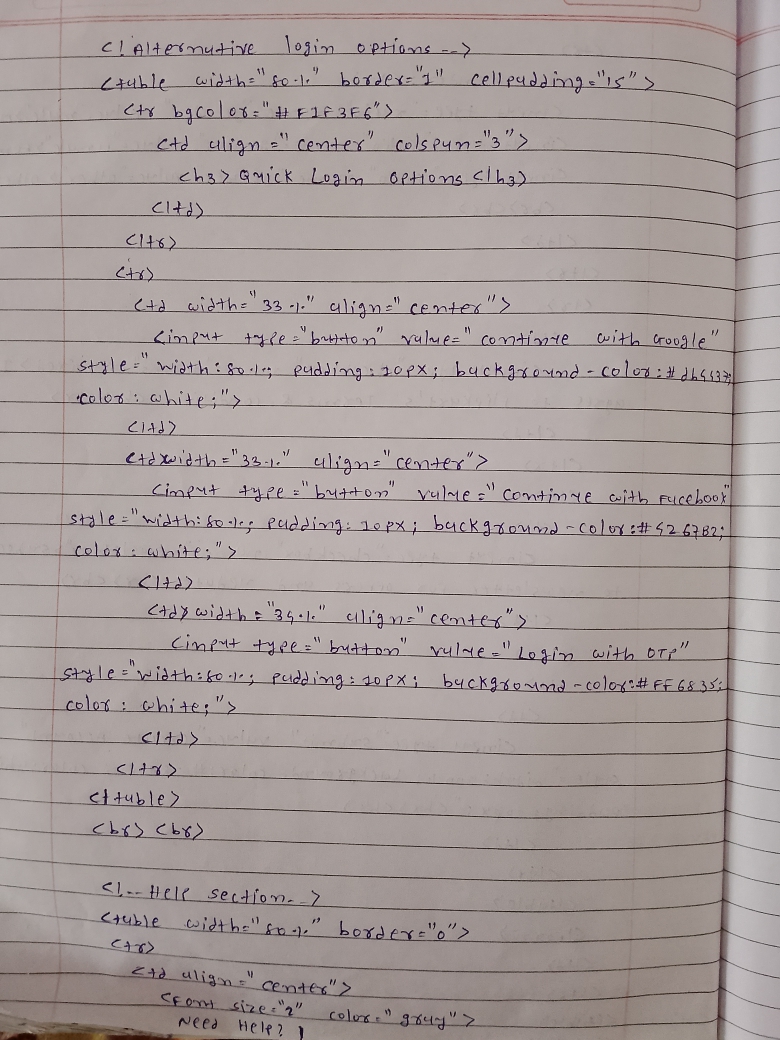 <! Alternative login options -->
<table width="80%" border="1" cellpadding="15">
<tr bgcolor="#F1F3F6">
<td align="center" colspan="3">
<h3> Quick Login options </h3>
</td>
</tr>
<tr>
<td width="33%" align="center">
<input type="button" value="continue with Google"
style="width:80%; padding:10px; background-color:#db4437;
color: white;">
</td>
<td width="33%" align="center">
<input type="button" value="continue with Facebook"
style="width:80%; padding:10px; background-color:#4267B2;
color: white;">
</td>
<td width="34%" align="center">
<input type="button" value="Login with OTP"
style="width:80%; padding:10px; background-color:#FF6835;
color: white;">
</td>
</tr>
</table>
<br> <br>
<!-- Help section -->
<table width="80%" border="0">
<tr>
<td align="center">
<font size="2" color="gray">
Need Help? |